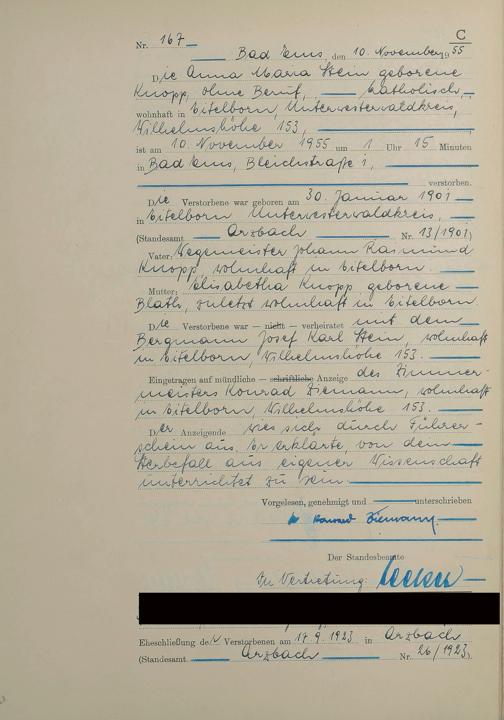 C
Nr. 167
Bad Ems, den 10. November 1955
Die Anna Maria Stein geborene
Knopp, ohne Beruf, katholisch
wohnhaft in Eitelborn, Unterwesterwaldkreis,
Wilhelmshöhe 153,
ist am 10. November 1955 um 1 Uhr 15 Minuten
in Bad Ems, Bleichstraße 1,
verstorben.
Die Verstorbene war geboren am 30. Januar 1901
in Eitelborn Unterwesterwaldkreis,
(Standesamt Arzbach Nr. 13/1901)
Vater: Wegemeister Johann Raimund
Knopp, wohnhaft in Eitelborn.
Mutter: Elisabetha Knopp geborene
Blath, zuletzt wohnhaft in Eitelborn.
Die Verstorbene war — nicht — verheiratet mit dem
Bergmann Josef Karl Stein, wohnhaft
in Eitelborn, Wilhelmshöhe 153.
Eingetragen auf mündliche — schriftliche — Anzeige des Zimmer-
meisters Konrad Ziemann, wohnhaft
in Eitelborn, Wilhelmshöhe 153.
Der Anzeigende wies sich durch Führer-
schein aus. Er erklärte, von dem
Sterbefall aus eigener Wissenschaft
unterrichtet zu sein.
Vorgelesen, genehmigt und unterschrieben
Konrad Ziemann
Der Standesbeamte
In Vertretung:
Eheschließung der Verstorbenen am 17.9.1923 in Arzbach
(Standesamt Arzbach Nr. 26/1923)